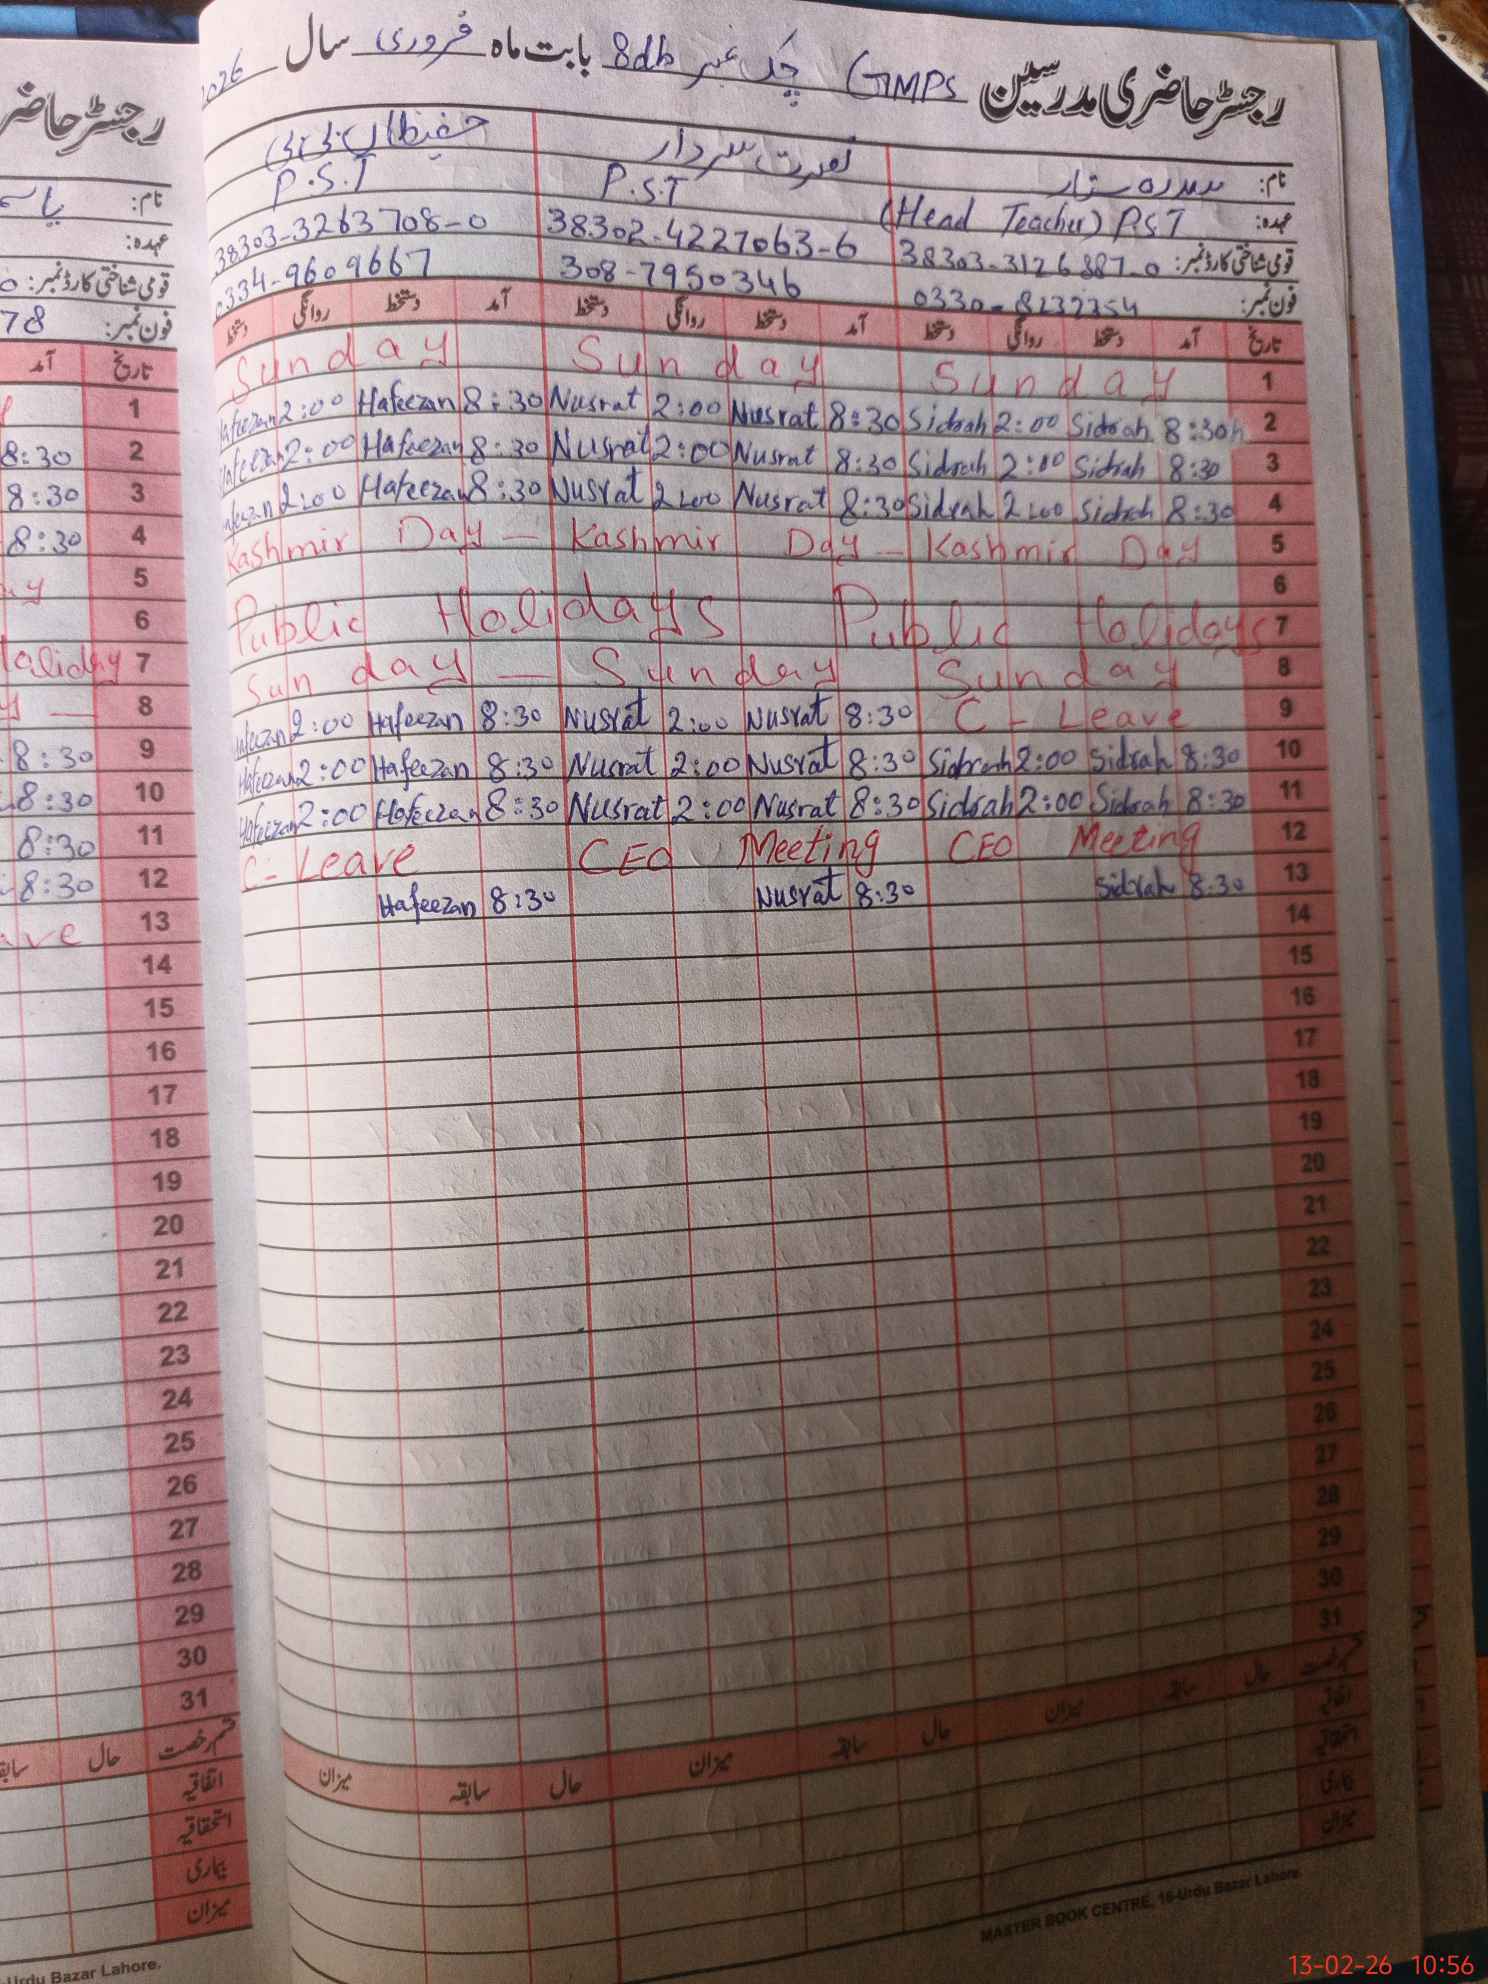 رجسٹر حاضری مدرسین GMPS چک نمبر 8db بابت ماہ فروری سال 2026
نام: سدرہ ستار نصرت سردار حفیظاں بی بی
عہدہ: (Head Teacher) P.S.T P.S.T P.S.T
قومی شناختی کارڈ نمبر: 38303-3126887-0 38302-4227063-6 38303-3263708-0
فون نمبر: 0330-8232354 308-7950346 0334-9609667
تاریخ آمد دستخط روانگی دستخط آمد دستخط روانگی دستخط آمد دستخط روانگی دستخط
Sunday Sunday Sunday 1
Hafeezan 2:00 Hafeezan 8:30 Nusrat 2:00 Nusrat 8:30 Sidrah 2:00 Sidrah 8:30 2
Hafeezan 2:00 Hafeezan 8:30 Nusrat 2:00 Nusrat 8:30 Sidrah 2:00 Sidrah 8:30 3
Hafeezan 2:00 Hafeezan 8:30 Nusrat 2:00 Nusrat 8:30 Sidrah 2:00 Sidrah 8:30 4
Kashmir Day - Kashmir Day - Kashmir Day 5
6
Public Holidays Public Holidays 7
Sunday - Sunday Sunday 8
Hafeezan 2:00 Hafeezan 8:30 Nusrat 2:00 Nusrat 8:30 C - Leave 9
Hafeezan 2:00 Hafeezan 8:30 Nusrat 2:00 Nusrat 8:30 Sidrah 2:00 Sidrah 8:30 10
Hafeezan 2:00 Hafeezan 8:30 Nusrat 2:00 Nusrat 8:30 Sidrah 2:00 Sidrah 8:30 11
C - Leave CEO Meeting CEO Meeting 12
Hafeezan 8:30 Nusrat 8:30 Sidrah 8:30 13
14
15
16
17
18
19
20
21
22
23
24
25
26
27
28
29
30
31
قسم رخصت حال سابقہ میزان حال سابقہ میزان حال سابقہ میزان
اتفاقیہ
استحقاقیہ
بیماری
میزان
MASTER BOOK CENTRE, 16-Urdu Bazar Lahore.
رجسٹر حاضر
نام:
عہدہ:
قومی شناختی کارڈ نمبر: 0
فون نمبر: 78
تاریخ آمد
1
8:30 2
8:30 3
8:30 4
5
6
Holiday 7
8
8:30 9
8:30 10
8:30 11
8:30 12
13
14
15
16
17
18
19
20
21
22
23
24
25
26
27
28
29
30
31
قسم رخصت حال
اتفاقیہ
استحقاقیہ
بیماری
میزان
-Urdu Bazar Lahore.
13-02-26 10:56